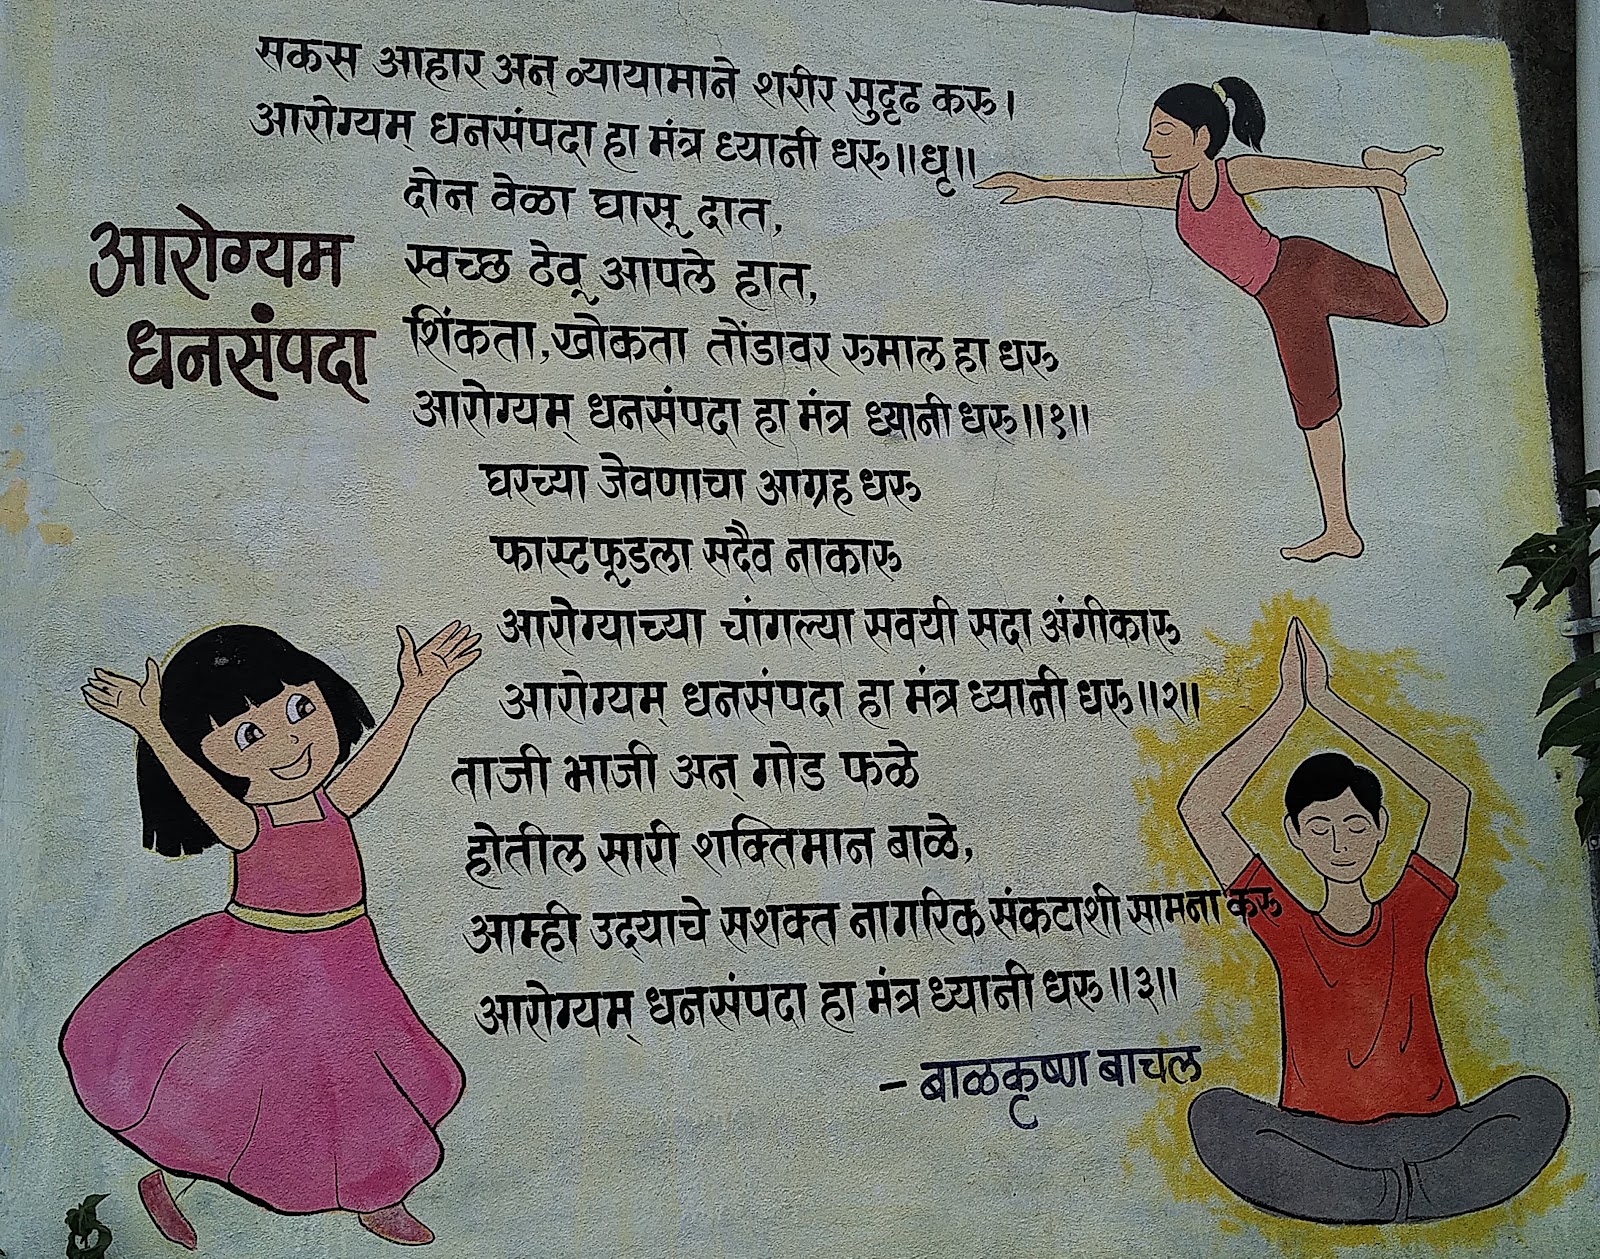 सकस आहार अन् व्यायामाने शरीर सुदृढ करू।
आरोग्यम् धनसंपदा हा मंत्र ध्यानी धरू॥धृ॥
आरोग्यम
धनसंपदा
दोन वेळा घासू दात,
स्वच्छ ठेवू आपले हात,
शिंकता,खोकता तोंडावर रुमाल हा धरू
आरोग्यम् धनसंपदा हा मंत्र ध्यानी धरू॥१॥
घरच्या जेवणाचा आग्रह धरू
फास्टफूडला सदैव नाकारू
आरोग्याच्या चांगल्या सवयी सदा अंगीकारू
आरोग्यम् धनसंपदा हा मंत्र ध्यानी धरू॥२॥
ताजी भाजी अन् गोड फळे
होतील सारी शक्तिमान बाळे,
आम्ही उद्‌याचे सशक्त नागरिक संकटाशी सामना करू
आरोग्यम् धनसंपदा हा मंत्र ध्यानी धरू॥३॥
– बाळकृष्ण बाचल